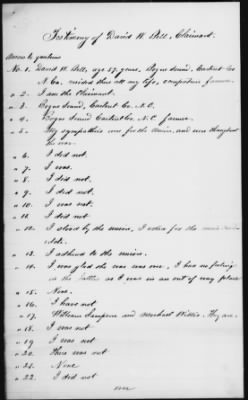 Testimony of David W. Bell, Claimant.
Answer to questions
No. 1. David W. Bell, age 57 years, Bogue Sound, Carteret Co
N. Ca. resided there all my life, occupation farmer.
" 2. I am the Claimant.
" 3. Bogue Sound, Carteret Co. N.C.
" 4. Bogue Sound Carteret Co. N.C. farmer.
" 5. My sympathies were for the Union, and were throughout
the war.
" 6. I did not.
" 7. I was.
" 8. I did not.
" 9. I did not.
" 10. I was not.
" 11. I did not
" 12. I stood by the union, I voted for the union
" 13. I adhered to the union.
" 14. I was glad she was one. I had no feeling
as the battles as I was in an out of way place
" 15. None.
" 16. I have not
" 17. William Sampson and Michael Willis. They are.
" 18. I was not
" 19 I was not
" 20. There was not
" 21. None
" 22. I did not